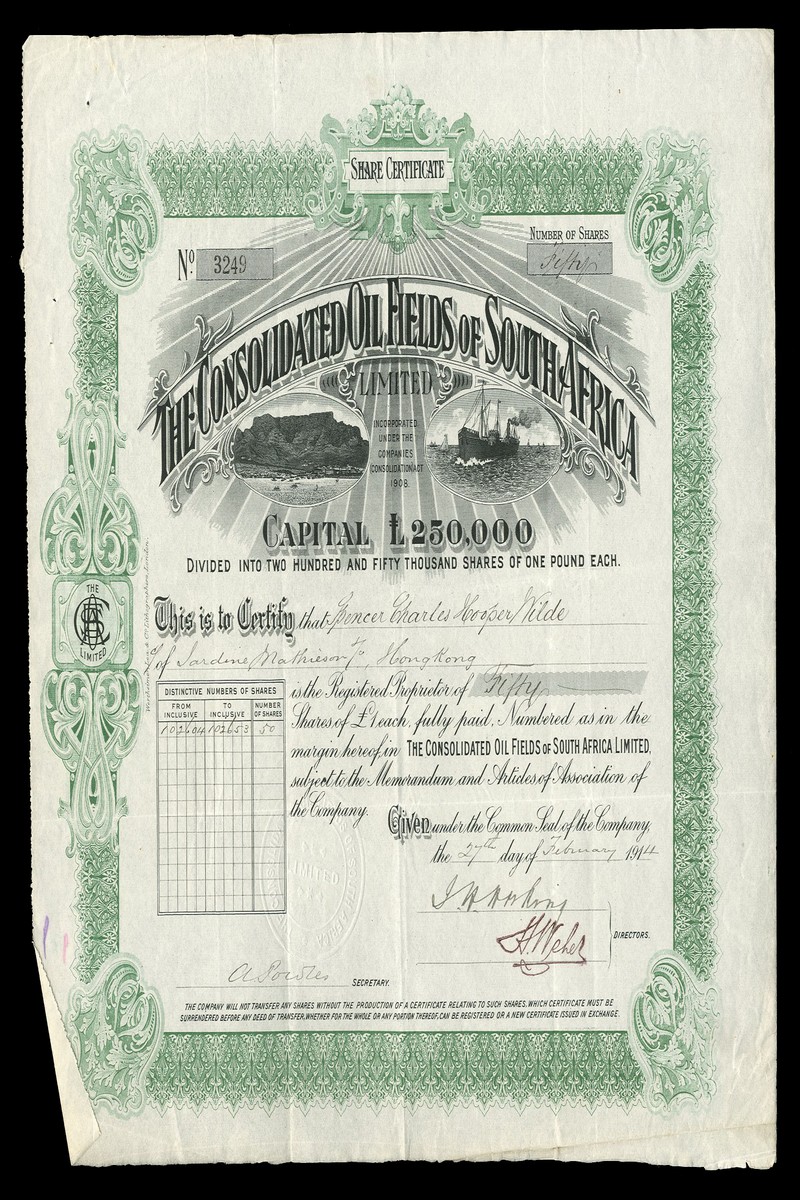 SHARE CERTIFICATE
NO. 3249
NUMBER OF SHARES
Fifty
THE CONSOLIDATED OIL FIELDS OF SOUTH AFRICA
LIMITED
INCORPORATED
UNDER THE
COMPANIES
CONSOLIDATION ACT
1908.
CAPITAL £250,000
DIVIDED INTO TWO HUNDRED AND FIFTY THOUSAND SHARES OF ONE POUND EACH.
This is to Certify that Spencer Charles Hooper Wilde
of Jardine Mathieson & Co, Hong Kong
is the Registered Proprietor of Fifty
Shares of £1 each, fully paid, Numbered as in the
margin hereof, in THE CONSOLIDATED OIL FIELDS OF SOUTH AFRICA LIMITED,
subject to the Memorandum and Articles of Association of
the Company.
Given under the Common Seal of the Company,
the 27th day of February 1914
DISTINCTIVE NUMBERS OF SHARES
FROM INCLUSIVE TO INCLUSIVE NUMBER OF SHARES
102604 102653 50
THE
LIMITED
DIRECTORS.
H. Weber
SECRETARY.
THE COMPANY WILL NOT TRANSFER ANY SHARES WITHOUT THE PRODUCTION OF A CERTIFICATE RELATING TO SUCH SHARES, WHICH CERTIFICATE MUST BE
SURRENDERED BEFORE ANY DEED OF TRANSFER, WHETHER FOR THE WHOLE OR ANY PORTION THEREOF, CAN BE REGISTERED OR A NEW CERTIFICATE ISSUED IN EXCHANGE.